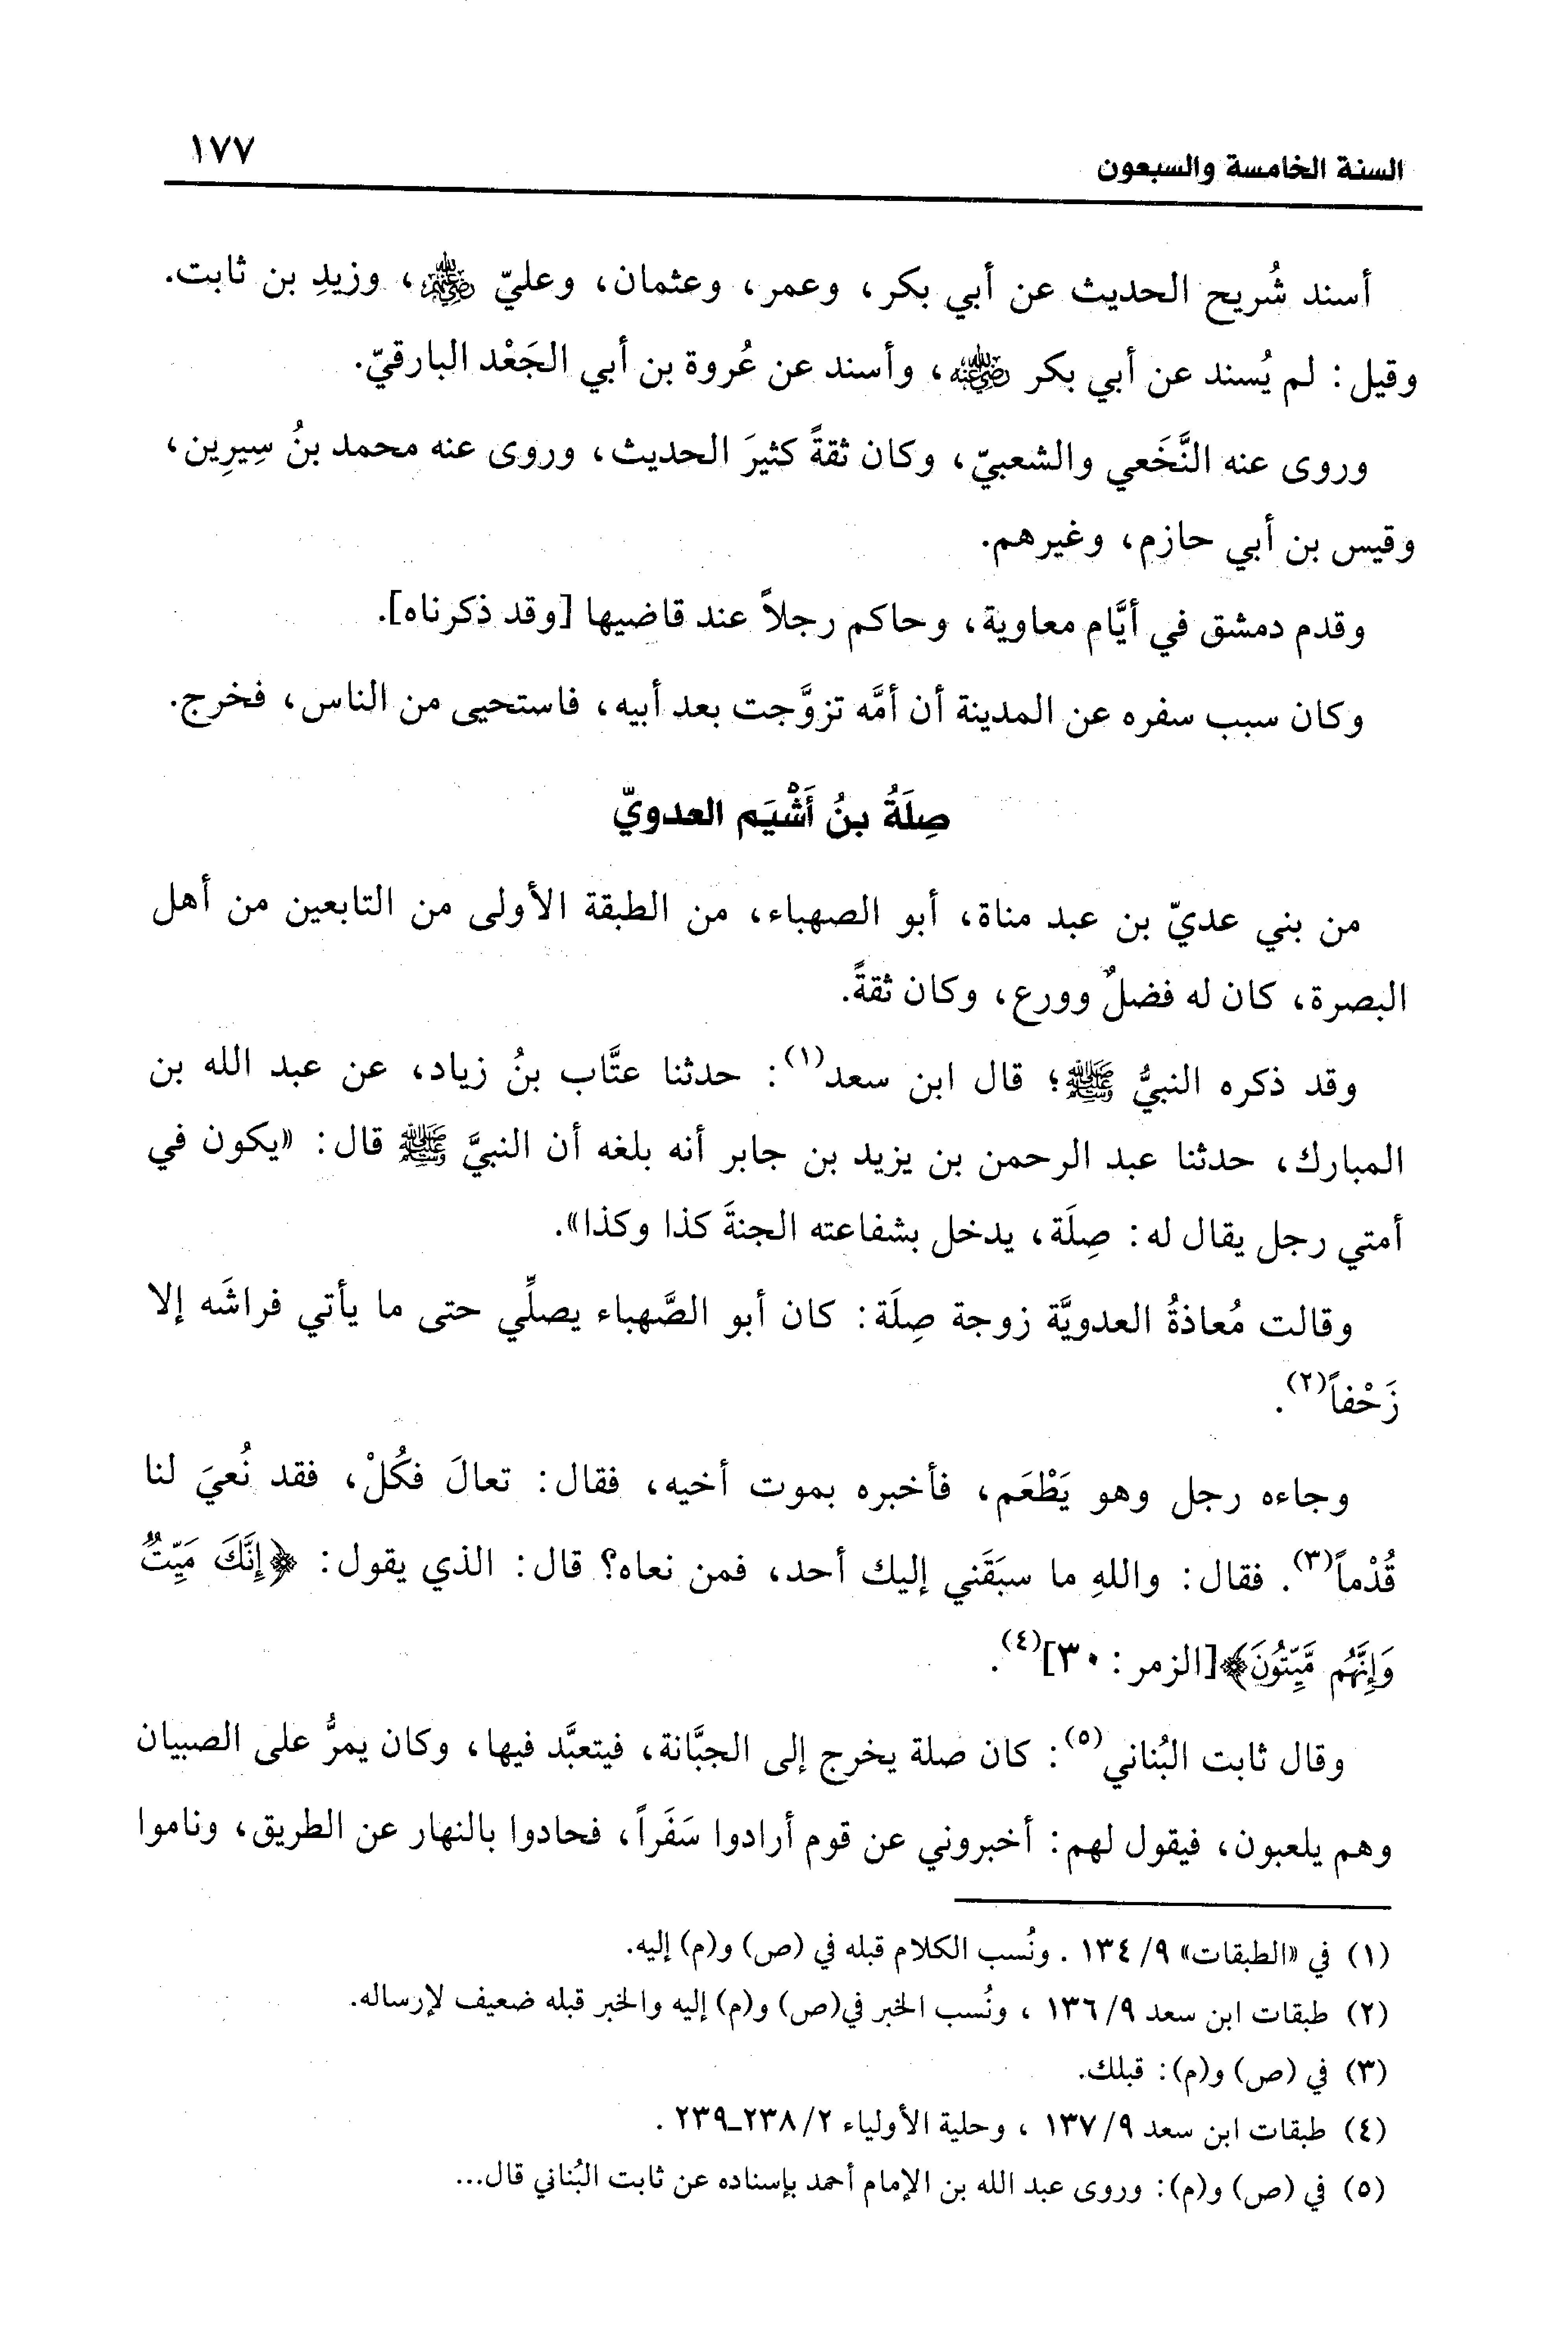 السنة الخامسة والسبعون ١٧٧
أسند شُريح الحديث عن أبي بكر، وعمر، وعثمان، وعليّ رضي الله عنهم، وزيدِ بن ثابت.
وقيل: لم يُسند عن أبي بكر رضي الله عنه، وأسند عن عُروة بن أبي الجَعْد البارقيّ.
وروى عنه النَّخَعي والشعبيّ، وكان ثقةً كثيرَ الحديث، وروى عنه محمد بنُ سِيرِين،
وقيس بن أبي حازم، وغيرهم.
وقدم دمشق في أيَّام معاوية، وحاكم رجلاً عند قاضيها [وقد ذكرناه].
وكان سبب سفره عن المدينة أن أمَّه تزوَّجت بعد أبيه، فاستحيى من الناس، فخرج.
صِلَةُ بنُ أَشْيَم العدويّ
من بني عديّ بن عبد مناة، أبو الصهباء، من الطبقة الأولى من التابعين من أهل
البصرة، كان له فضلٌ وورع، وكان ثقةً.
وقد ذكره النبيُّ ﷺ؛ قال ابن سعد(١): حدثنا عتَّاب بنُ زياد، عن عبد الله بن
المبارك، حدثنا عبد الرحمن بن يزيد بن جابر أنه بلغه أن النبيَّ ﷺ قال: «يكون في
أمتي رجل يقال له: صِلَة، يدخل بشفاعته الجنةَ كذا وكذا».
وقالت مُعاذةُ العدويَّة زوجة صِلَة: كان أبو الصَّهباء يصلِّي حتى ما يأتي فراشَه إلا
زَحْفاً(٢).
وجاءه رجل وهو يَطْعَم، فأخبره بموت أخيه، فقال: تعالَ فكُلْ، فقد نُعيَ لنا
قُدْماً(٣). فقال: واللهِ ما سبَقَني إليك أحد، فمن نعاه؟ قال: الذي يقول: ﴿إِنَّكَ مَيِّتٌ
وَإِنَّهُم مَّيِّتُونَ﴾[الزمر: ٣٠](٤).
وقال ثابت البُناني(٥): كان صلة يخرج إلى الجبَّانة، فيتعبَّد فيها، وكان يمرُّ على الصبيان
وهم يلعبون، فيقول لهم: أخبروني عن قوم أرادوا سَفَراً، فحادوا بالنهار عن الطريق، وناموا
(١) في «الطبقات» ٩/ ١٣٤ . ونُسب الكلام قبله في (ص) و(م) إليه.
(٢) طبقات ابن سعد ٩/ ١٣٦ ، ونُسب الخبر في(ص) و(م) إليه والخبر قبله ضعيف لإرساله.
(٣) في (ص) و(م): قبلك.
(٤) طبقات ابن سعد ٩/ ١٣٧ ، وحلية الأولياء ٢/ ٢٣٨ـ٢٣٩ .
(٥) في (ص) و(م): وروى عبد الله بن الإمام أحمد بإسناده عن ثابت البُناني قال...